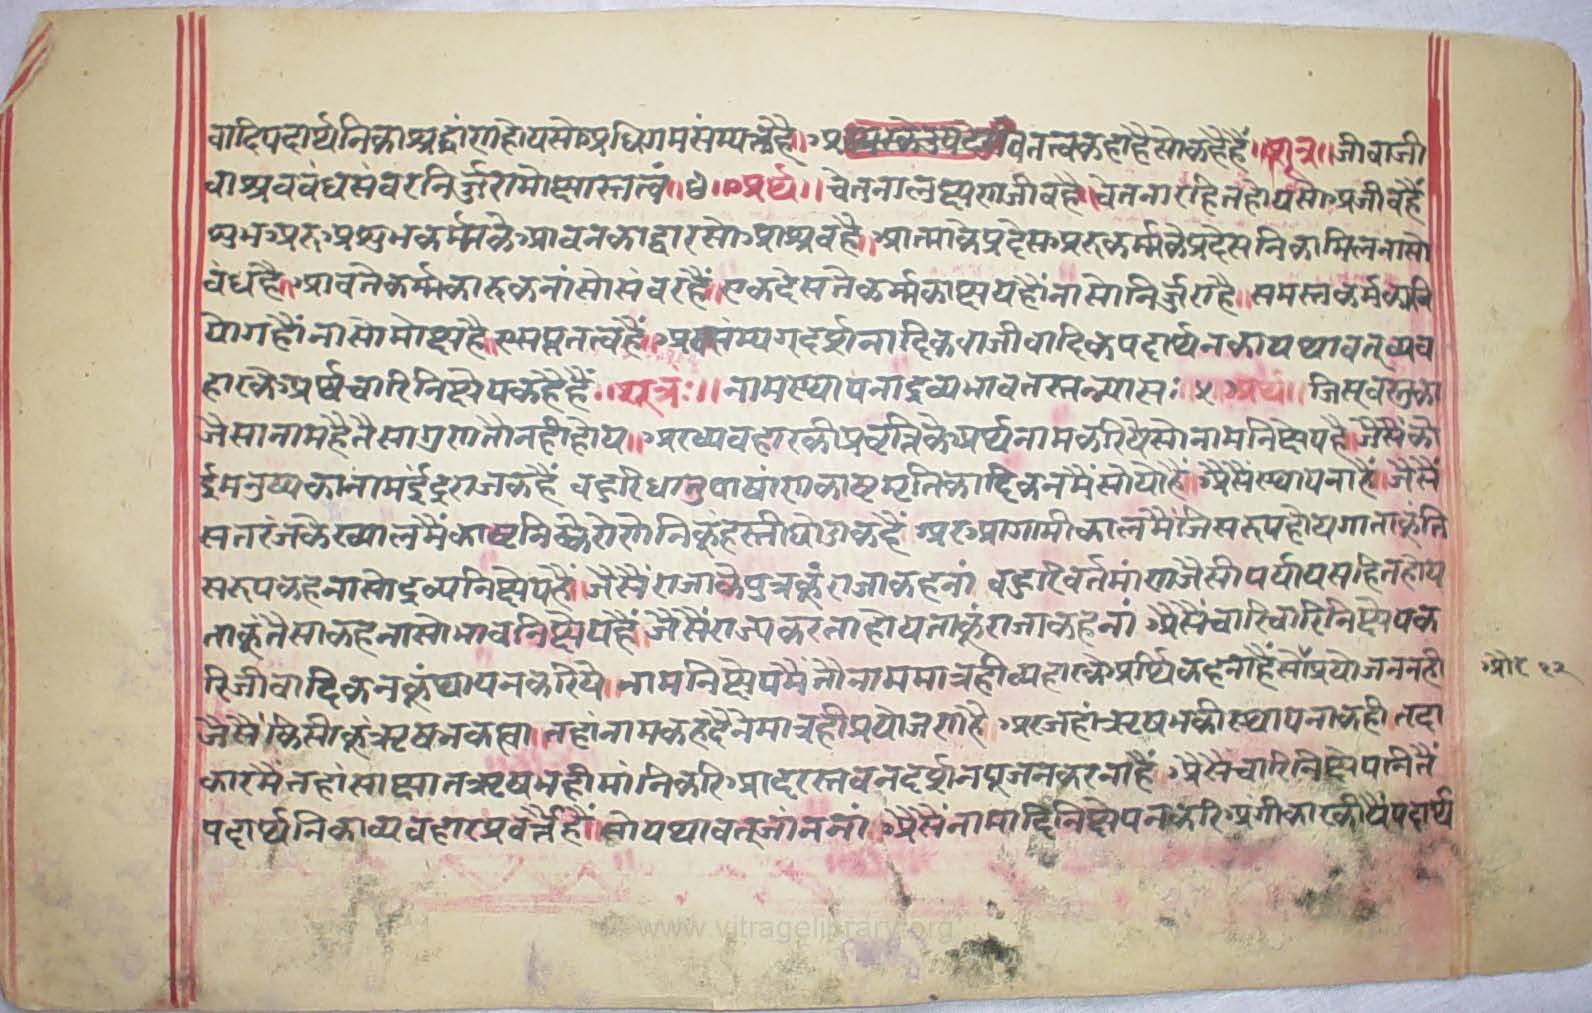 वादिपदार्थनिका श्रद्धांणहोयसोअधिगमसंम्यक्तहै॥ तत्वकहाहैसोकहैहैं॥ सूत्र॥ जीवाजी
वाश्रवबंधसंवरनिर्ज्जरामोक्षास्तत्वं॥४॥अर्थ॥ चेतनालक्षणजीवहै॥ चेतनारहितहोयसोअजीवहैं
शुभअरुअशुभकर्म्मकेआवनकाद्वारसोआश्रवहै॥ आत्माकेप्रदेसअरुकर्म्मकेप्रदेसनिकामिलनासो
बंधहै॥ आवतेकर्म्मकारुकनांसोसंवरहैं॥ एकदेसतेकर्म्मकाक्षयहोंनासोनिर्ज्जराहै॥ समस्तकर्मकावि
योगहोंनासोमोक्षहै॥ एसप्ततत्वहैं॥ संम्यगदर्शनादिकवाजीवादिकपदार्थनकायथावतव्यव
हारकेअर्थिचारिनिक्षेपकहैहैं॥ सूत्रः॥ नामस्थापनाद्रव्यभावतस्तन्न्यासः॥५॥अर्थ॥ जिसवस्तुका
जैसानामहैतैसागुणतौनहीहोय॥ अरव्यवहारकीप्रवृत्तिकेअर्थनामकरियेसोनामनिक्षेपहै॥ जैसैंको
ईमनुष्यकानामईंद्रराजकहैं वहुरिधातुपाषांणकाष्टमृतिकादिकनमैंसोयोहै॥ ऐसैंस्थापनाहै॥ जैसैं
सतरंजकेख्यालमैंकाष्टनिकेरोनिकूंहस्तीघोडाकहैं अरआगामीकालमैंजिसरूपहोयगाताकूंति
सरूपकहनासोद्रव्यनिक्षेपहैं॥ जैसैंराजाकेपुत्रकूंराजाकहनां वहुरिवर्तमांणजैसीपर्यायसहितहोय
ताकूंतैसाकहनासोभावनिक्षेपहैं॥ जैसैंराज्यकरताहोयताकूंराजाकहनां ऐसैंचारिनिक्षेपक
रिजीवादिकनकूंथापनकरिये॥ नामनिक्षेपमैंतौनाममात्रहीव्यहारकेअर्थिकहनाहैंसोप्रयोजननही
जैसैंकिसीकूंऋषभकह्या॥ तहांनामकहदेनेमात्रहीप्रयोजणहै॥ अरजहांऋषभकीस्थापनाकही तदा
कारमैंतहांसाक्षातऋषभहीमांनिकरिआदरस्तवनदर्शनपूजनकरनाहैं ऐसैंचारिनिक्षेपानितैं
पदार्थनिकाव्यवहारप्रवर्त्तैहै॥ सोयथावतजांननां॥ ऐसैंनामादिनिक्षेपनकरिअंगीकारकीयेंपदार्थ
www.vitragelibrary.org